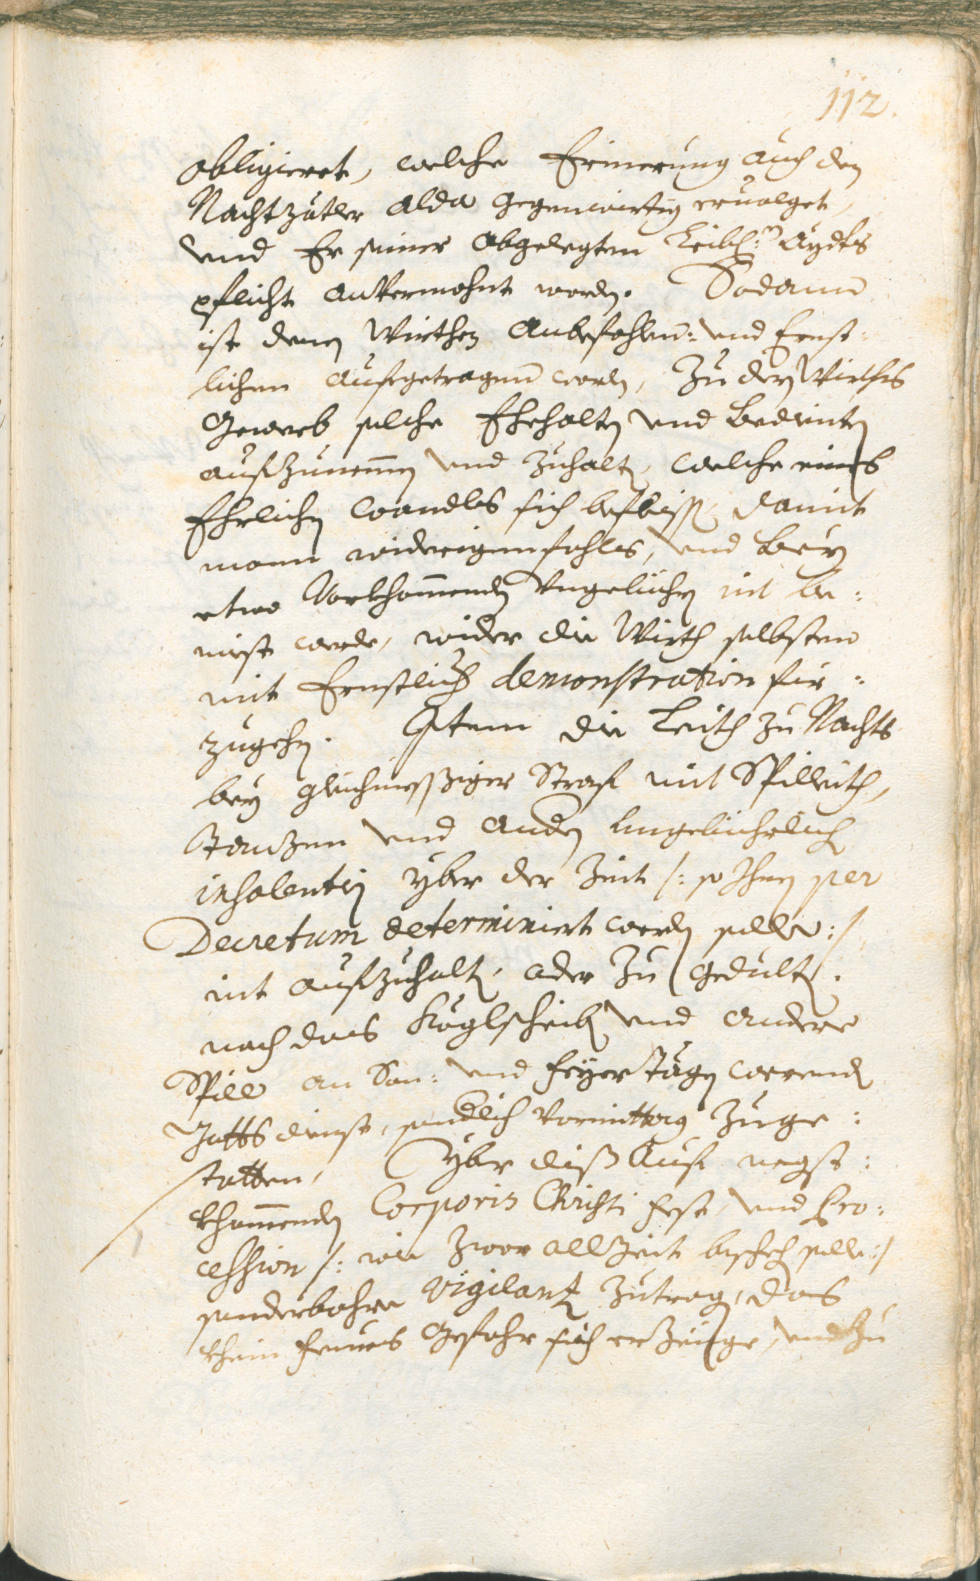 112.
obligieret, welche Erinnerung auch den
Nachtzätler alda gegenwirtig eruolget,
vnd Er seiner abgelegten Leibl: Aydts
pflicht anVermohnt worden. Sodann
ist denen Wirthen anbefohlen: vnd Ernst:
lichen aufgetragen worden, Zu den Wirths
Gewerb solche Ehehalten vnd Bediente
aufzunemen vnd Zuhalten, welche eines
Ehrlichen Wandls sich befleissen, damit
mann widerigenfahls, vnd bey
etwo Vorkhommenden Vngebühren nit be:
miest werde, wider die Wirth selbsten
mit Ernstlicher demonstration für:
zugehen. Item die Leith zu Nachts
bey gleichmessiger Straf mit Spilleith,
Tanzen vnd andern Vngebührlichen
insolentien yber der Zeit /: so Ihnen per
Decretum determiniert werden solle :/
nit aufzuhalten, oder Zu gedulten.
noch das Köglscheiben vnd andere
Spill an Son: vnd feyertägen werenden
Gottsdienst, sonderlich Vormittag Zuge:
statten, Yber diß auf negst:
khommenden Corporis Christi fest, vnd Pro:
cession /: wie Zwor allzeit beschechen solle :/
sonderbahre Vigilanz Zutragen, das
khein feuers Gefahr sich erZeige, vnd Zu